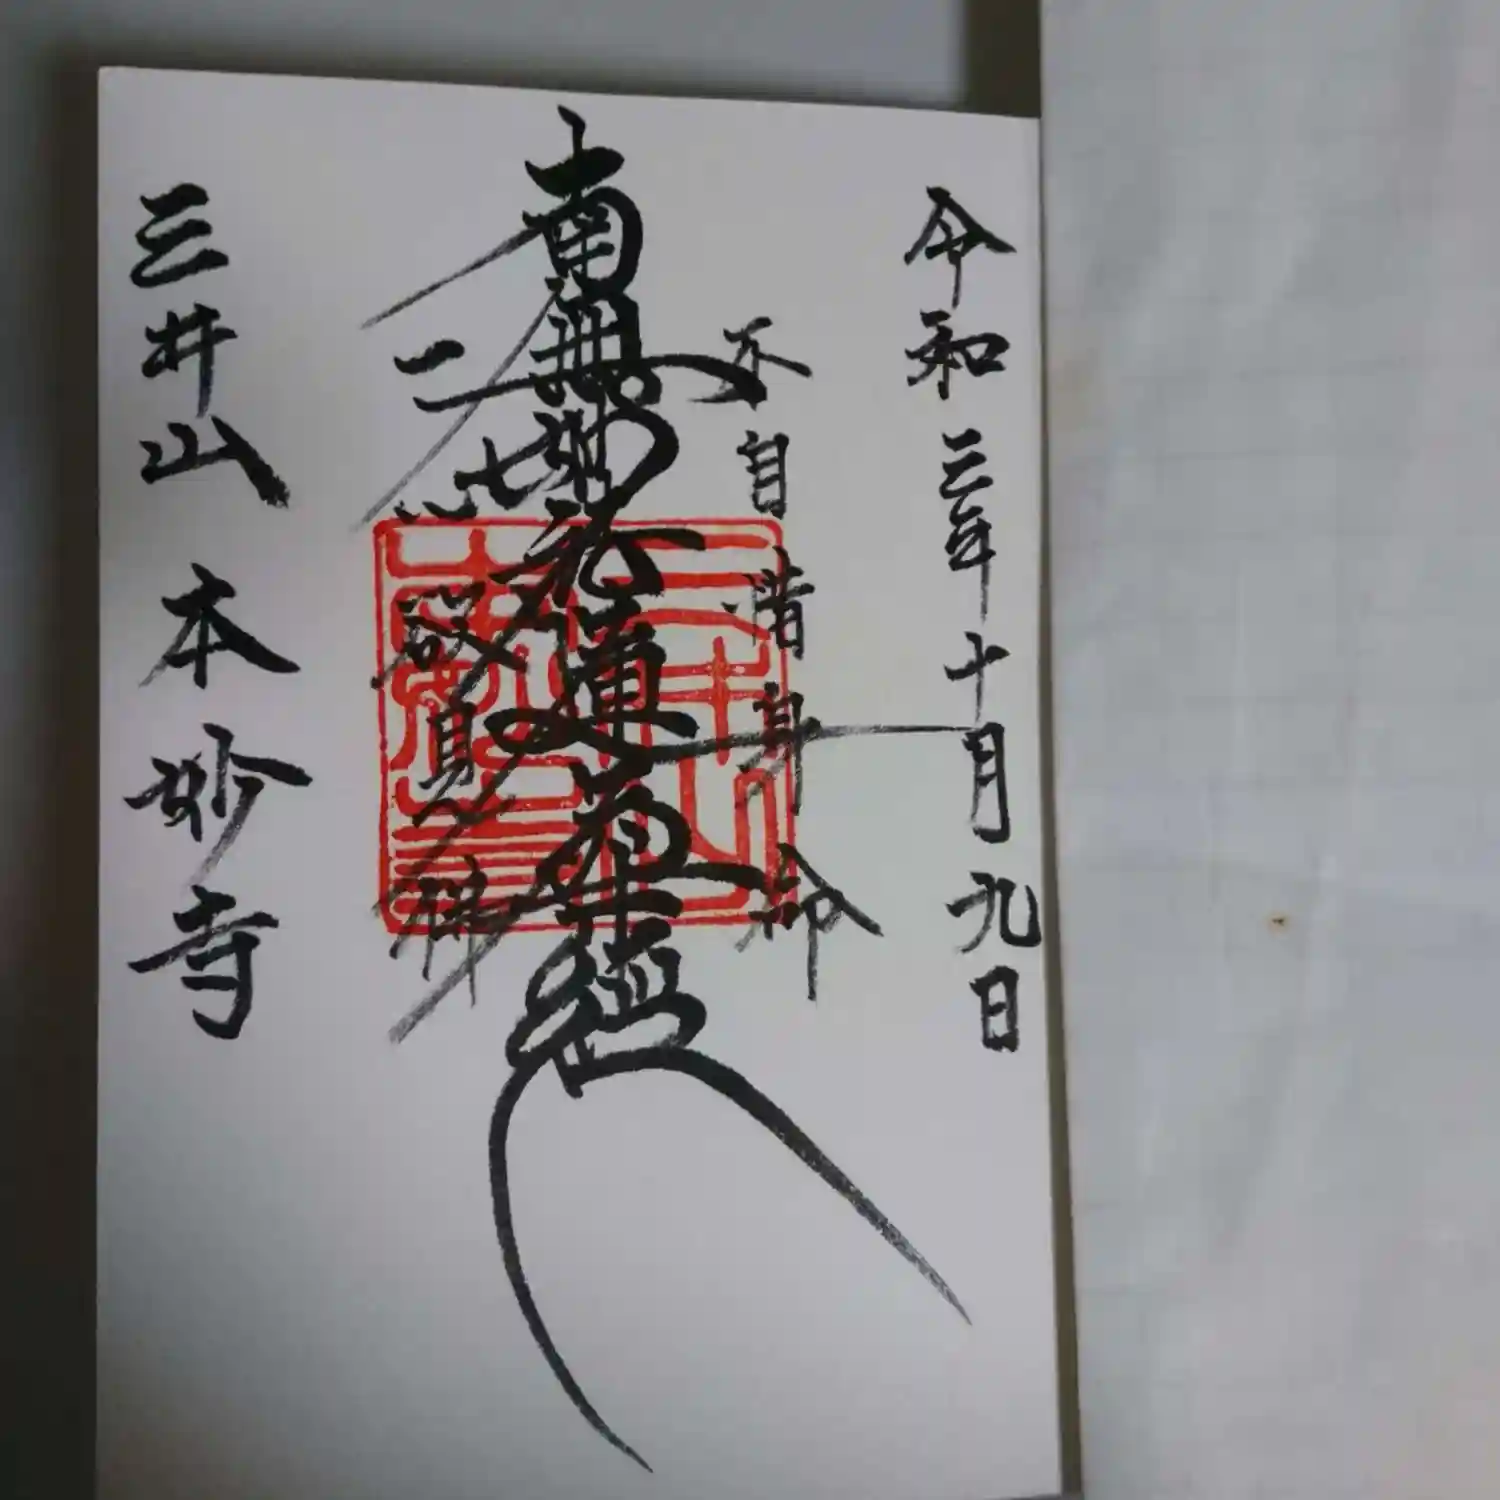 令和三年十月九日
不自惜身命
南無妙法蓮華經
一心欲見佛
三井山 本妙寺